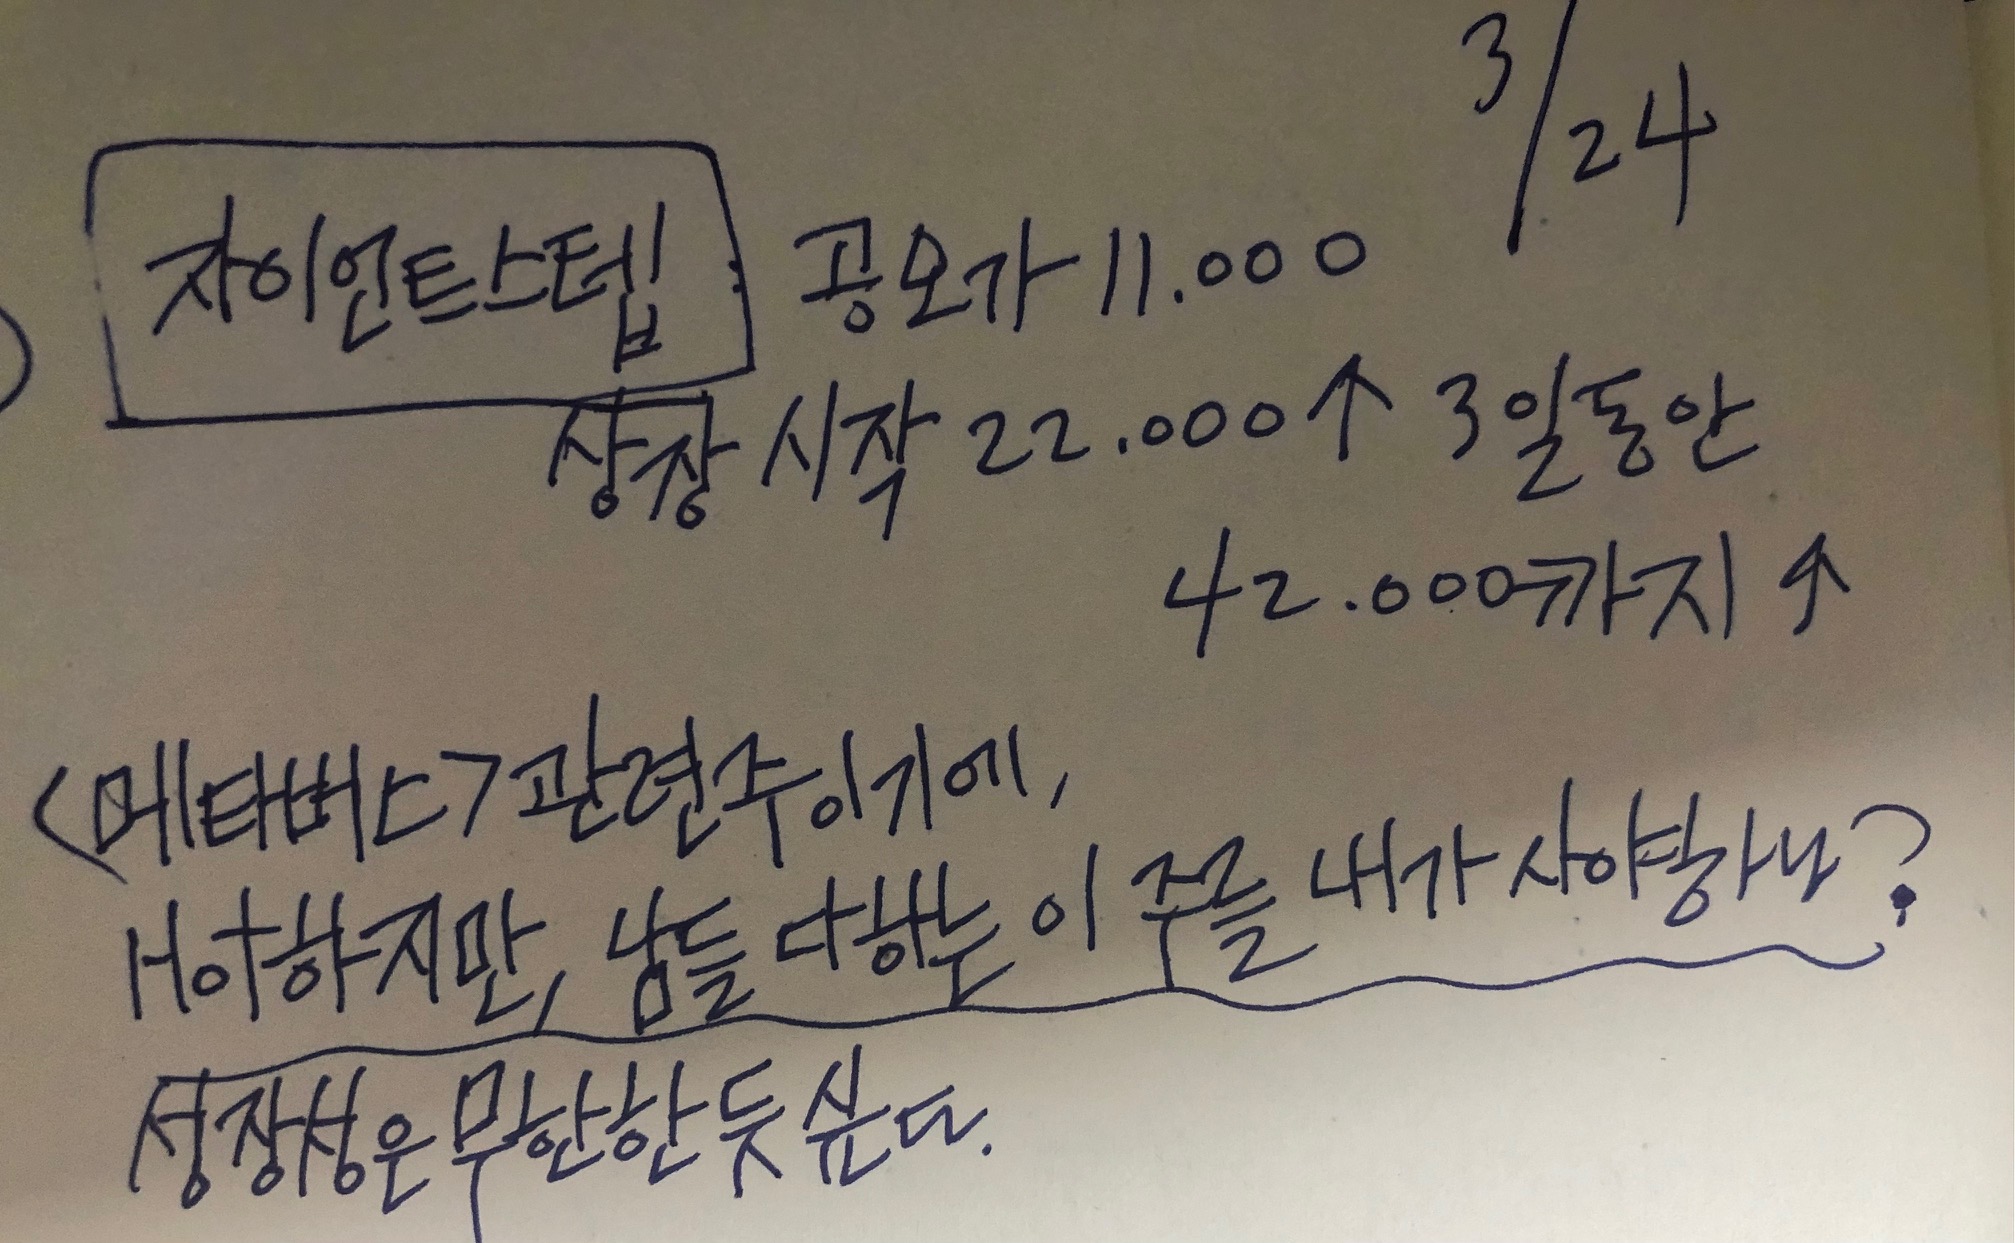 3/24
자이언트스텝 : 공모가 11.000
상장 시작 22.000↑ 3일동안
42.000까지 ↑
<메타버스>관련주이기에,
하지만, 남들 다하는 이 주를 내가 사야하나?
성장성은 무한한 듯 싶다.